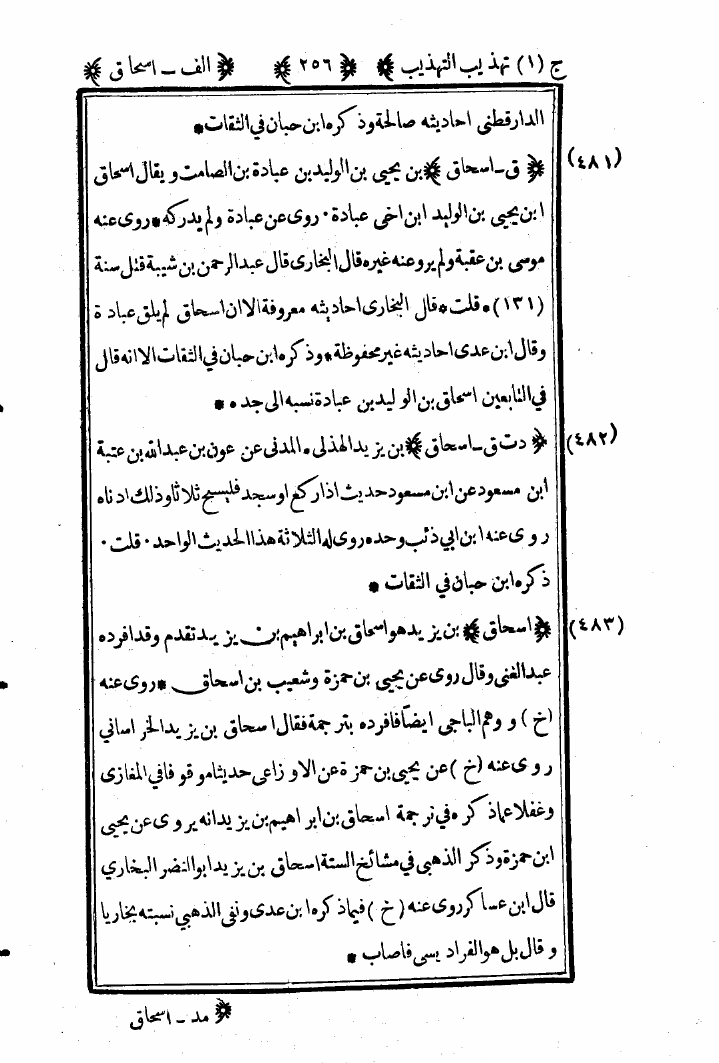 ج (١) تهذيب التهذيب ﴿ ٢٥٦ ﴾ ﴿ الف - اسحاق ﴾
الدارقطنى احاديثه صالحة وذكره ابن حبان في الثقات *
(٤٨١) ﴿ ق - اسحاق ﴾ بن يحيى بن الوليد بن عبادة بن الصامت ويقال اسحاق
ابن يحيى بن الوليد ابن اخى عبادة . روى عن عبادة ولم يدركه * روى عنه
موسى بن عقبة ولم يرو عنه غيره قال البخارى قال عبد الرحمن بن شيبة قتل سنة
(١٣١) * قلت * قال البخارى احاديثه معروفة الا ان اسحاق لم يلق عبادة
وقال ابن عدى احاديثه غير محفوظة * وذكره ابن حبان في الثقات الا انه قال
في التابعين اسحاق بن الوليد بن عبادة نسبه الى جده *
(٤٨٢) ﴿ د ت ق - اسحاق ﴾ بن يزيد الهذلى . المدنى عن عون بن عبد الله بن عتبة
ابن مسعود عن ابن مسعود حديث اذا ركع او سجد فليسبح ثلاثا وذلك ادناه
روى عنه ابن ابي ذئب وحده روى له الثلاثة هذا الحديث الواحد . قلت .
ذكره ابن حبان في الثقات *
(٤٨٣) ﴿ اسحاق ﴾ بن يزيد هو اسحاق بن ابراهيم بن يزيد تقدم وقد افرده
عبد الغنى وقال روى عن يحيى بن حمزة وشعيب بن اسحاق * روى عنه
(خ) و وهم الباجى ايضاً فافرده بترجمة فقال اسحاق بن يزيد الخراساني
روى عنه (خ) عن يحيى بن حمزة عن الاوزاعى حديثا موقوفا في المغازى
وغفلا عما ذكره في ترجمة اسحاق بن ابراهيم بن يزيد انه يروى عن يحيى
ابن حمزة وذكر الذهبى في مشائخ الستة اسحاق بن يزيد ابو النضر البخاري
قال ابن عساكر روى عنه (خ) فيما ذكره ابن عدى ونفى الذهبي نسبته بخاريا
وقال بل هو الفراديسى فاصاب *
﴿ مد - اسحاق